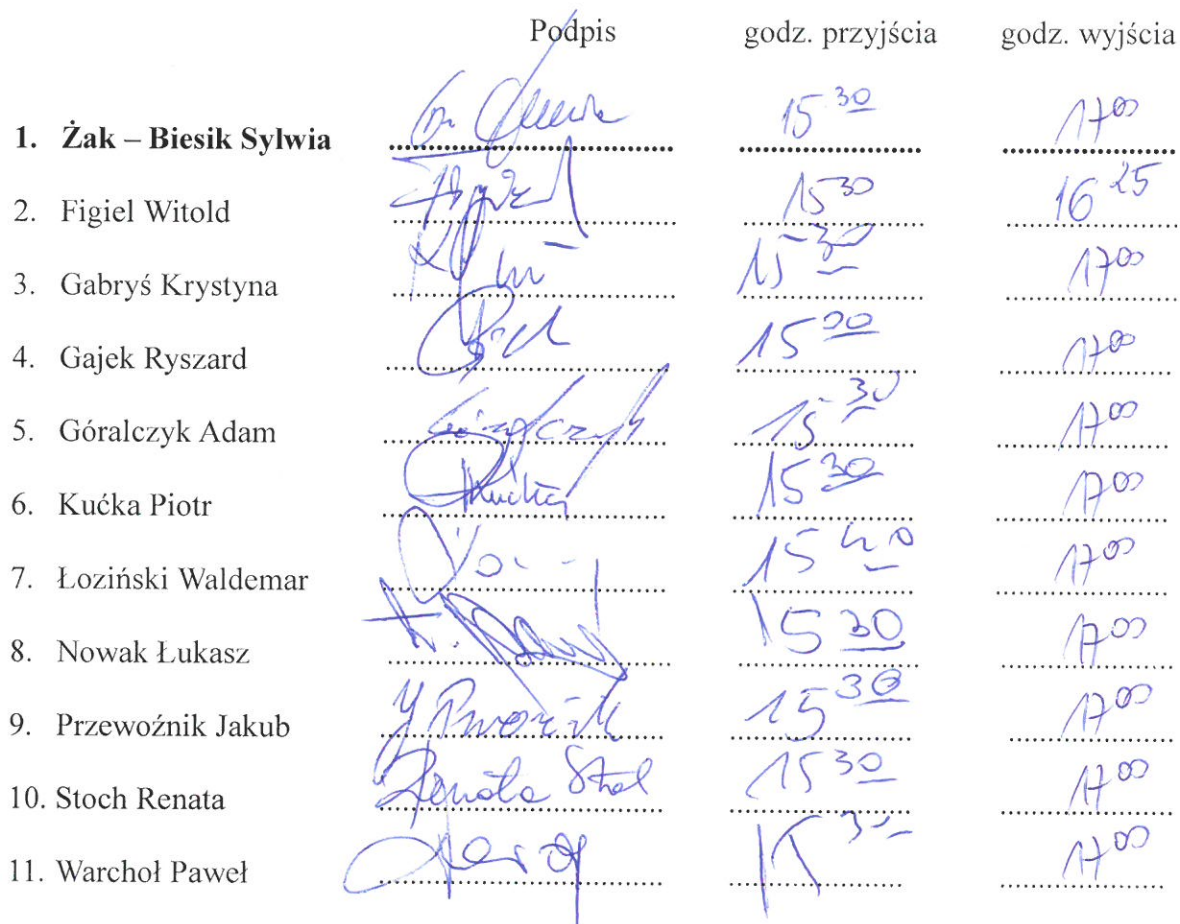 Podpis godz. przyjścia godz. wyjścia
1. Żak – Biesik Sylwia 15 30 17 00
2. Figiel Witold 15 30 16 25
3. Gabryś Krystyna 15 30 17 00
4. Gajek Ryszard 15 00 17 00
5. Góralczyk Adam Góralczyk 15 30 17 00
6. Kućka Piotr Kućka 15 30 17 00
7. Łoziński Waldemar 15 40 17 00
8. Nowak Łukasz 15 30 17 00
9. Przewoźnik Jakub 15 30 17 00
10. Stoch Renata Renata Stoch 15 30 17 00
11. Warchoł Paweł 15 30 17 00